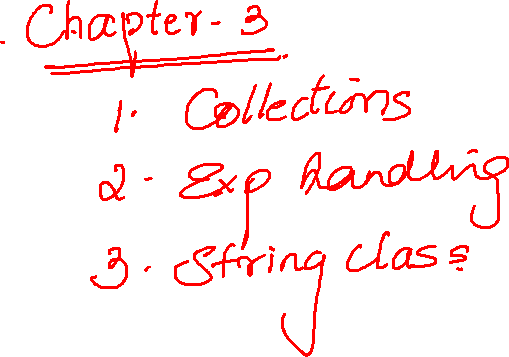 Chapter - 3
1. Collections
2 - Exp handling
3. String class